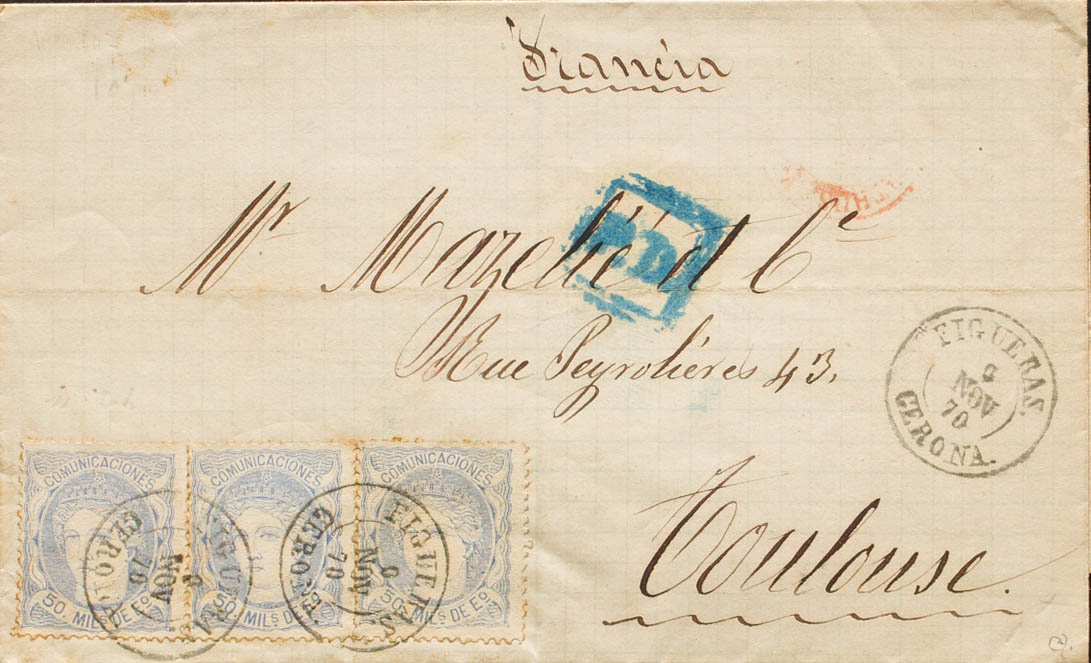 Francia
P.D.
Mr Mazelié et Ce
Rue Peyrolières 43.
FIGUERAS.
NOV
70
GERONA.
Toulouse.
COMUNICACIONES
COMUNICACIONES
COMUNICACIONES
50 MILS DE Eo
50 MILS DE Eo
50 MILS DE Eo
NOV
70
FIGUERAS.
NOV
70